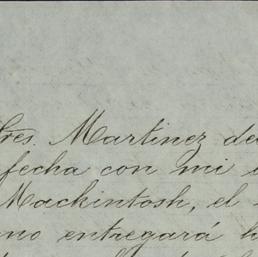 Sres. Martinez de
fecha con mi
Mackintosh, el
no entregará